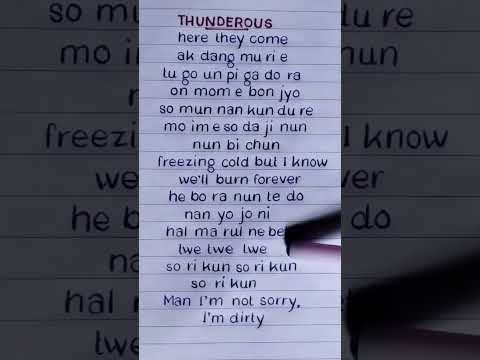 THUNDEROUS
here they come
ak dang mu ri e
lu go un pi ga do ra
on mom e bon jyo
so mun nan kun du re
mo im e so da ji nun
nun bi chun
freezing cold but I know
we'll burn forever
he bo ra nun te do
nan yo jo ni
hal ma rul ne be
lwe lwe lwe
so ri kun so ri kun
so ri kun
Man I'm not sorry,
I'm dirty